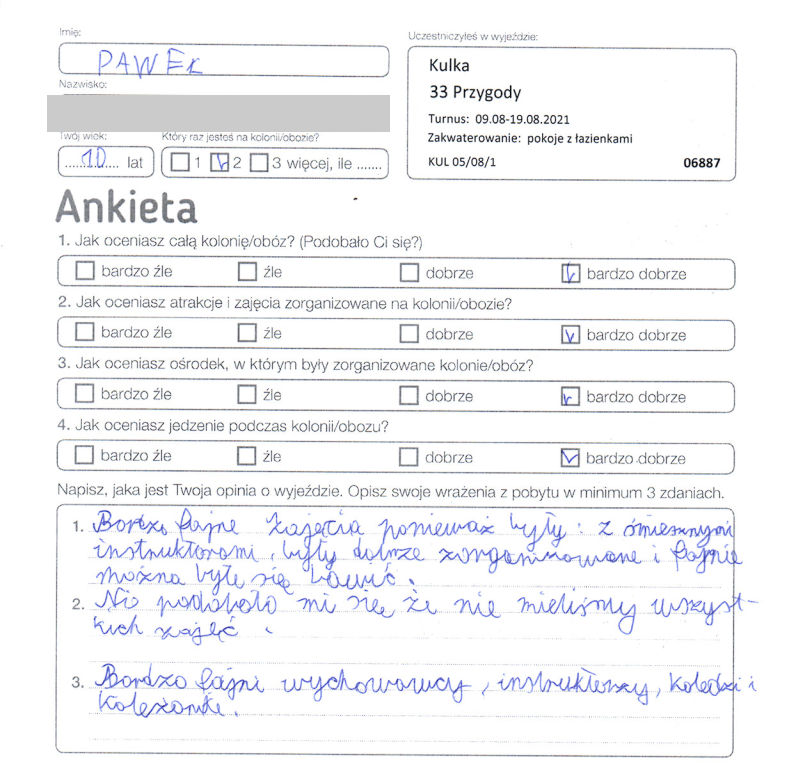 Imię:
PAWEŁ
Nazwisko:
Twój wiek:
Który raz jesteś na kolonii/obozie?
.....10.... lat
1 2 3 więcej, ile .......
Uczestniczyłeś w wyjeździe:
Kulka
33 Przygody
Turnus: 09.08-19.08.2021
Zakwaterowanie: pokoje z łazienkami
KUL 05/08/1 06887
Ankieta
1. Jak oceniasz całą kolonię/obóz? (Podobało Ci się?)
bardzo źle źle dobrze bardzo dobrze
2. Jak oceniasz atrakcje i zajęcia zorganizowane na kolonii/obozie?
bardzo źle źle dobrze bardzo dobrze
3. Jak oceniasz ośrodek, w którym były zorganizowane kolonie/obóz?
bardzo źle źle dobrze bardzo dobrze
4. Jak oceniasz jedzenie podczas kolonii/obozu?
bardzo źle źle dobrze bardzo dobrze
Napisz, jaka jest Twoja opinia o wyjeździe. Opisz swoje wrażenia z pobytu w minimum 3 zdaniach.
1. Bardzo fajne zajęcia ponieważ były: z śmiesznymi
instruktorami, były dobrze zorganizowane i fajnie
można było się bawić.
2. Nie podobało mi się że nie mieliśmy wszyst-
kich zajęć.
3. Bardzo fajni wychowawcy, instruktorzy, koledzi i
koleżanki.